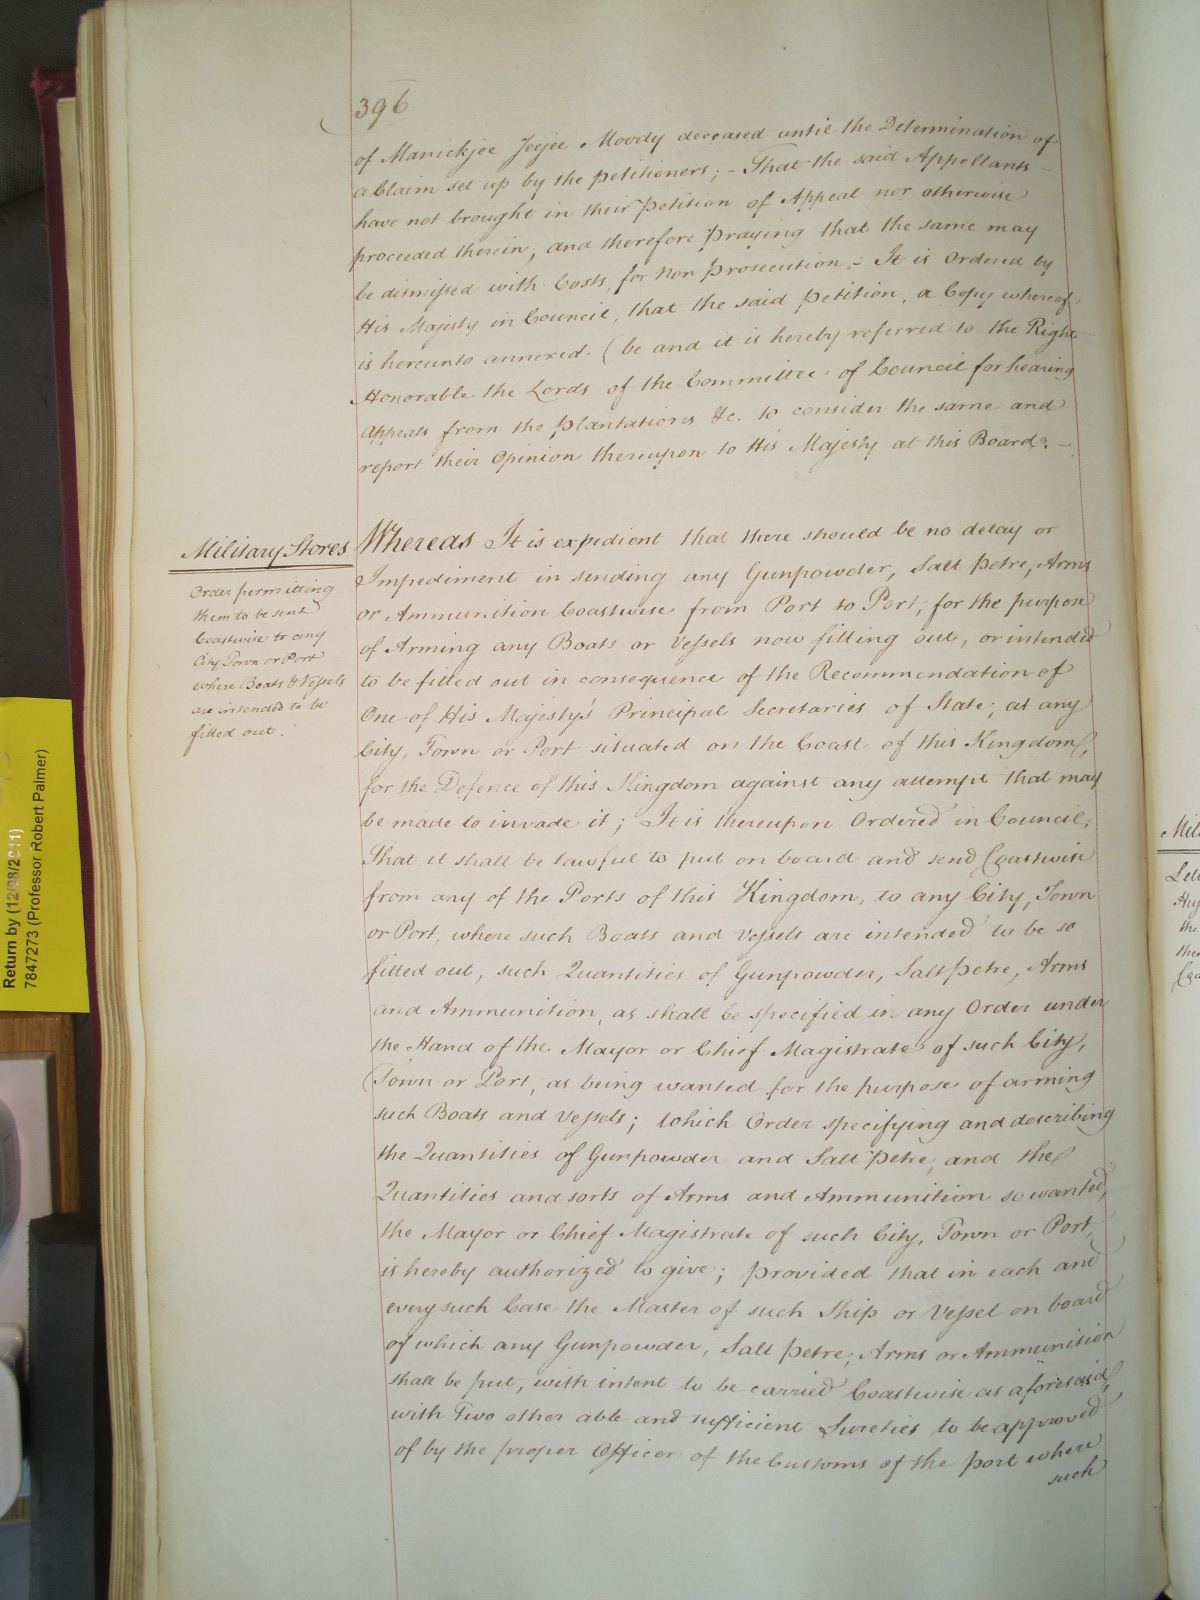 396
of Manickjee Jeejee Moody deceased until the Determination of
a Claim set up by the petitioners; - That the said Appellants
have not brought in their Petition of Appeal nor otherwise
proceeded therein; and therefore Praying that the same may
be dismissed with Costs, for Non Prosecution. - It is Ordered by
His Majesty in Council, that the said Petition, a Copy whereof
is hereunto annexed. (be and it is hereby referred to the Right
Honorable the Lords of the Committee of Council for hearing
Appeals from the Plantations &c. to consider the same and
report their Opinion thereupon to His Majesty at this Board. -
Military Stores
Order permitting
them to be sent
Coastwise to any
City Town or Port
where Boats & Vessels
are intended to be
fitted out.
Whereas It is expedient that there should be no delay or
Impediment in sending any Gunpowder, Salt Petre, Arms
or Ammunition Coastwise from Port to Port, for the purpose
of Arming any Boats or Vessels now fitting out, or intended
to be fitted out in consequence of the Recommendation of
One of His Majesty's Principal Secretaries of State, at any
City, Town or Port situated on the Coast of this Kingdom,
for the Defence of this Kingdom against any attempt that may
be made to invade it; It is thereupon Ordered in Council,
That it shall be lawful to put on board and send Coastwise
from any of the Ports of this Kingdom, to any City, Town
or Port, where such Boats and Vessels are intended to be so
fitted out, such Quantities of Gunpowder, Salt Petre, Arms
and Ammunition, as shall be specified in any Order under
the Hand of the Mayor or Chief Magistrate of such City,
Town or Port, as being wanted for the purpose of arming
such Boats and Vessels; which Order specifying and describing
the Quantities of Gunpowder and Salt Petre, and the
Quantities and sorts of Arms and Ammunition so wanted,
the Mayor or Chief Magistrate of such City, Town or Port,
is hereby authorized to give; provided that in each and
every such Case the Master of such Ship or Vessel on board
of which any Gunpowder, Salt Petre, Arms or Ammunition
shall be put, with intent to be carried Coastwise as aforesaid,
with Two other able and sufficient Sureties to be approved
of by the proper Officer of the Customs of the Port where
such
Return by (12/08/2011)
7847273 (Professor Robert Palmer)